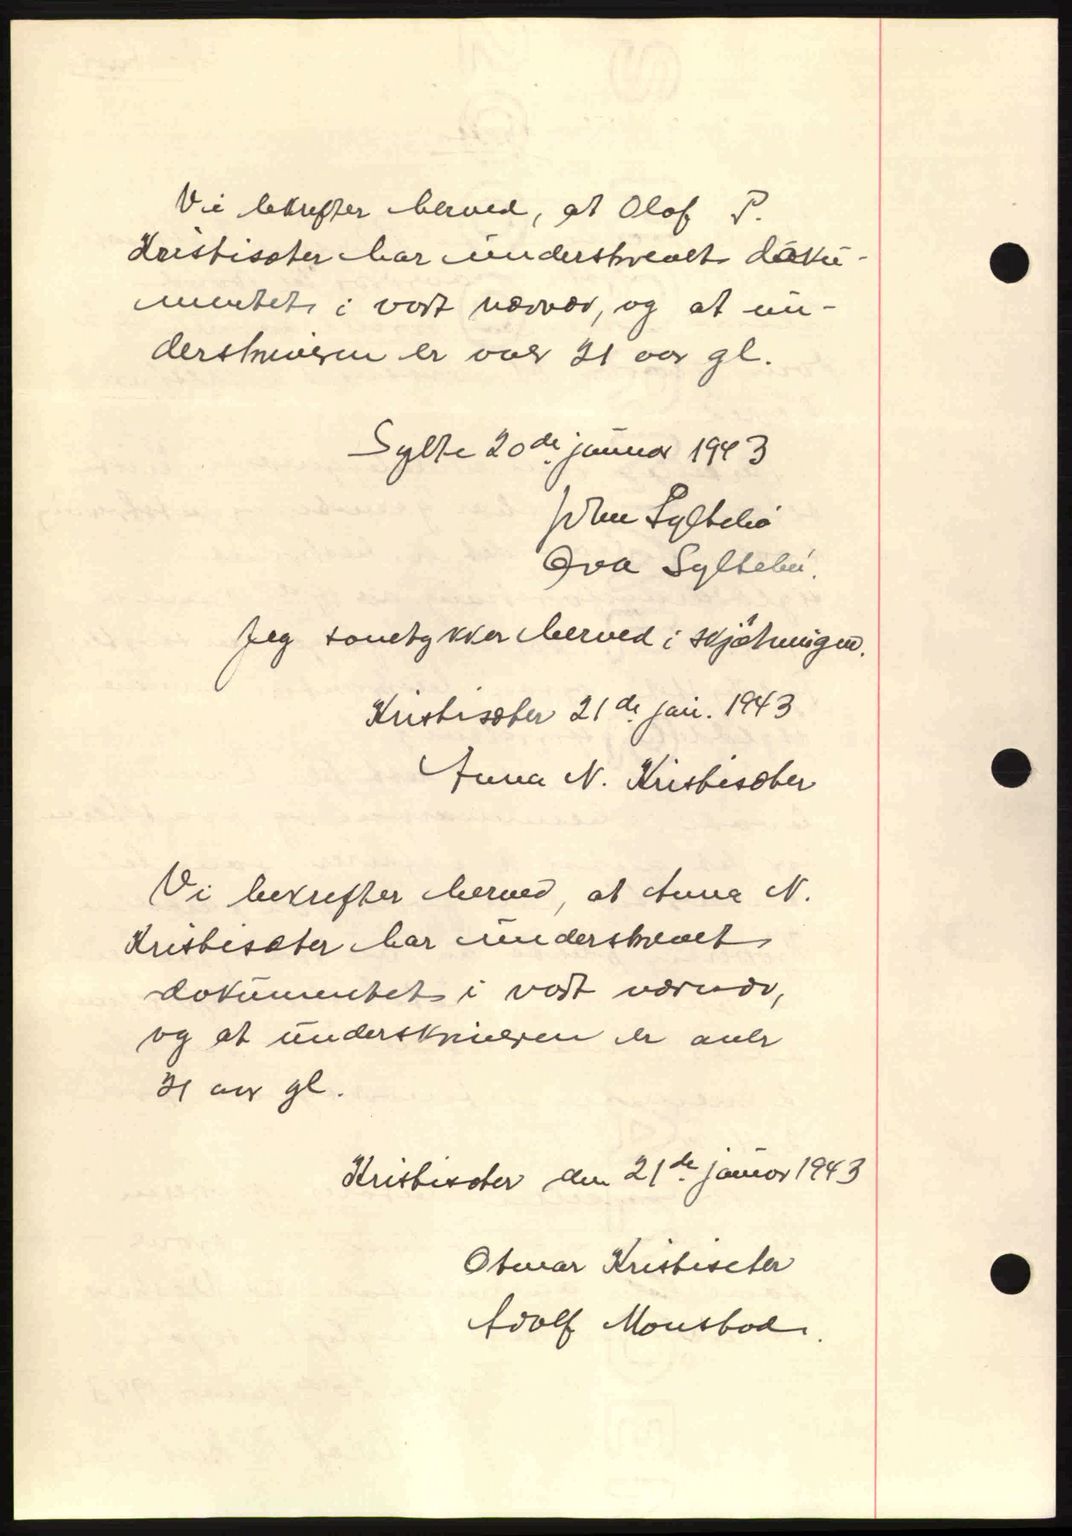 Vi bekrefter herved, at Olof P.
Kristisæter har underskrevet doku-
mentet i vort nærvær, og at un-
derskriveren er over 21 aar gl.
Sylte 20de januar 1943
John Syltebø
Ova Syltebø.
Jeg samtykker herved i skjötningen.
Kristisæter 21de jan. 1943
Anna N. Kristisæter
Vi bekrefter herved, at Anna N.
Kristisæter har underskrevet
dokumentet i vort nærvær,
og at underskriveren er over
21 aar gl.
Kristisæter den 21de januar 1943
Otmar Kristisæter
Adolf Monsbod.